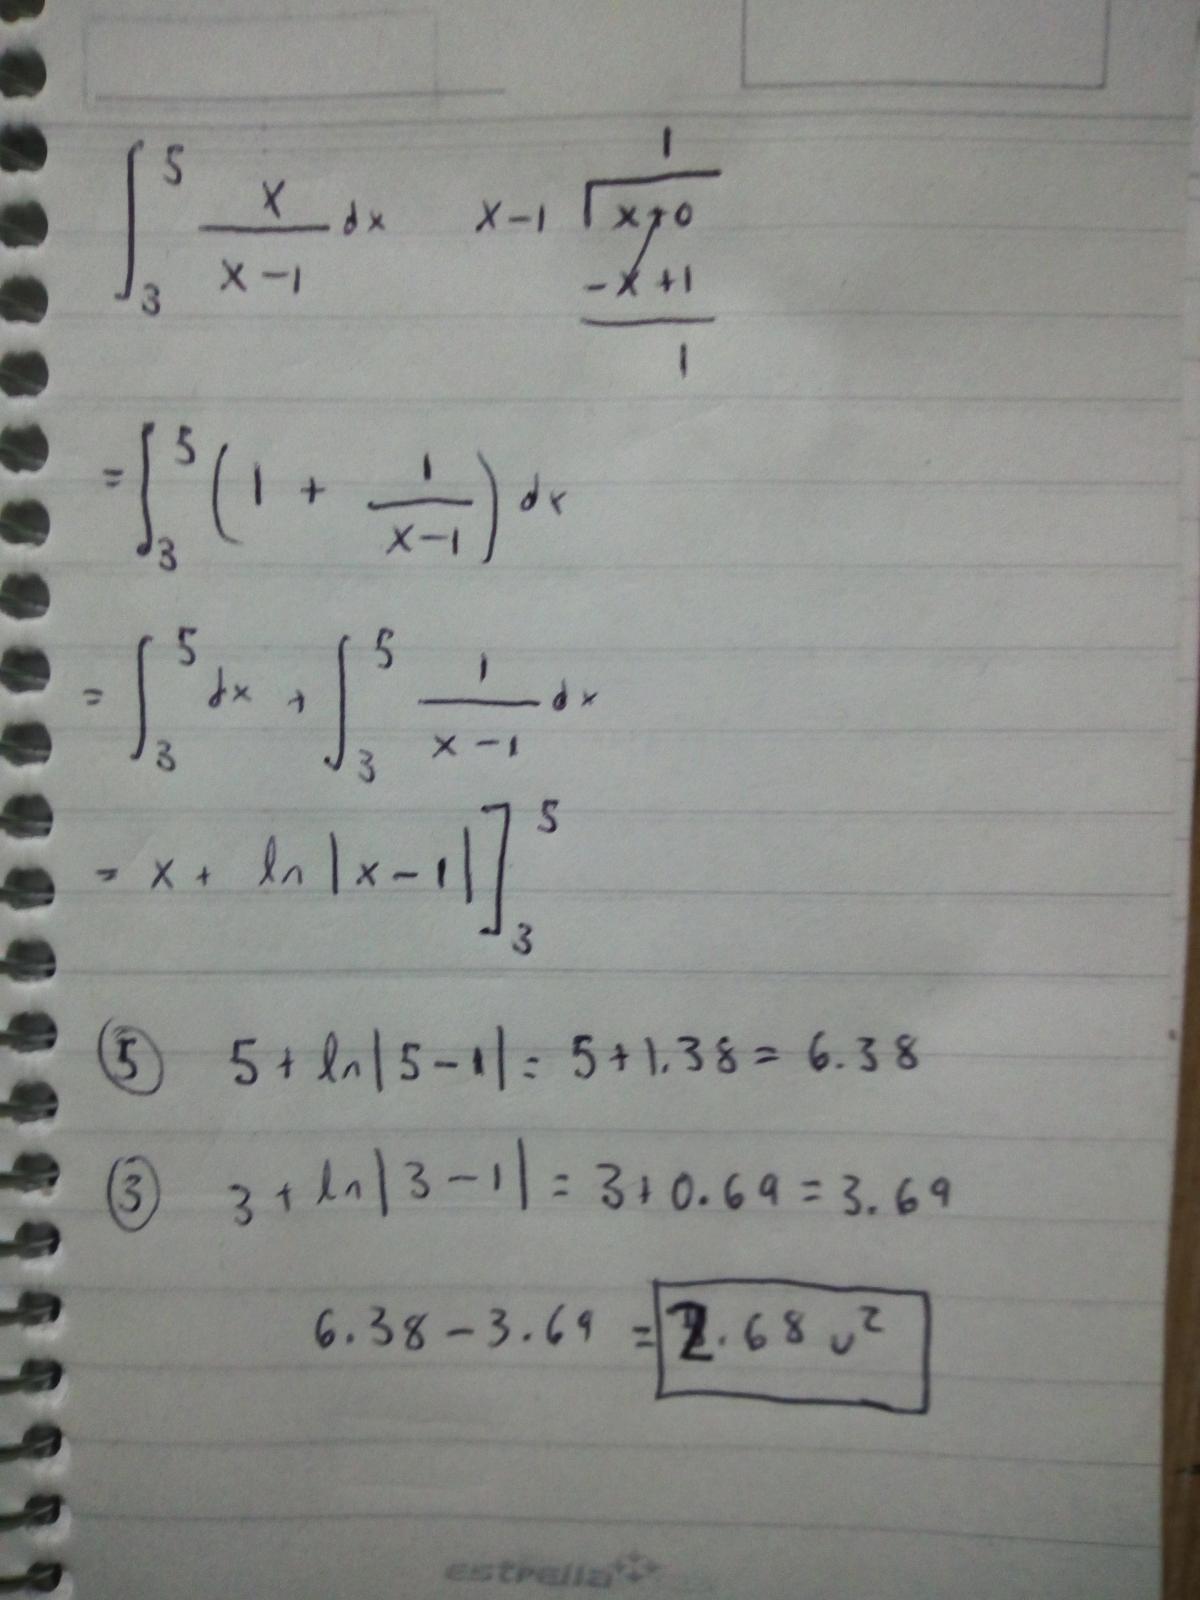 ∫₃⁵ x/(x-1) dx    x-1 ⟌ x+0
1
-x+1
1
= ∫₃⁵ (1 + 1/(x-1)) dx
= ∫₃⁵ dx + ∫₃⁵ 1/(x-1) dx
= x + ln|x-1| ]₃⁵
⑤ 5 + ln|5-1| = 5+1.38 = 6.38
③ 3 + ln|3-1| = 3+0.69 = 3.69
6.38 - 3.69 = 2.68 u²
estrella